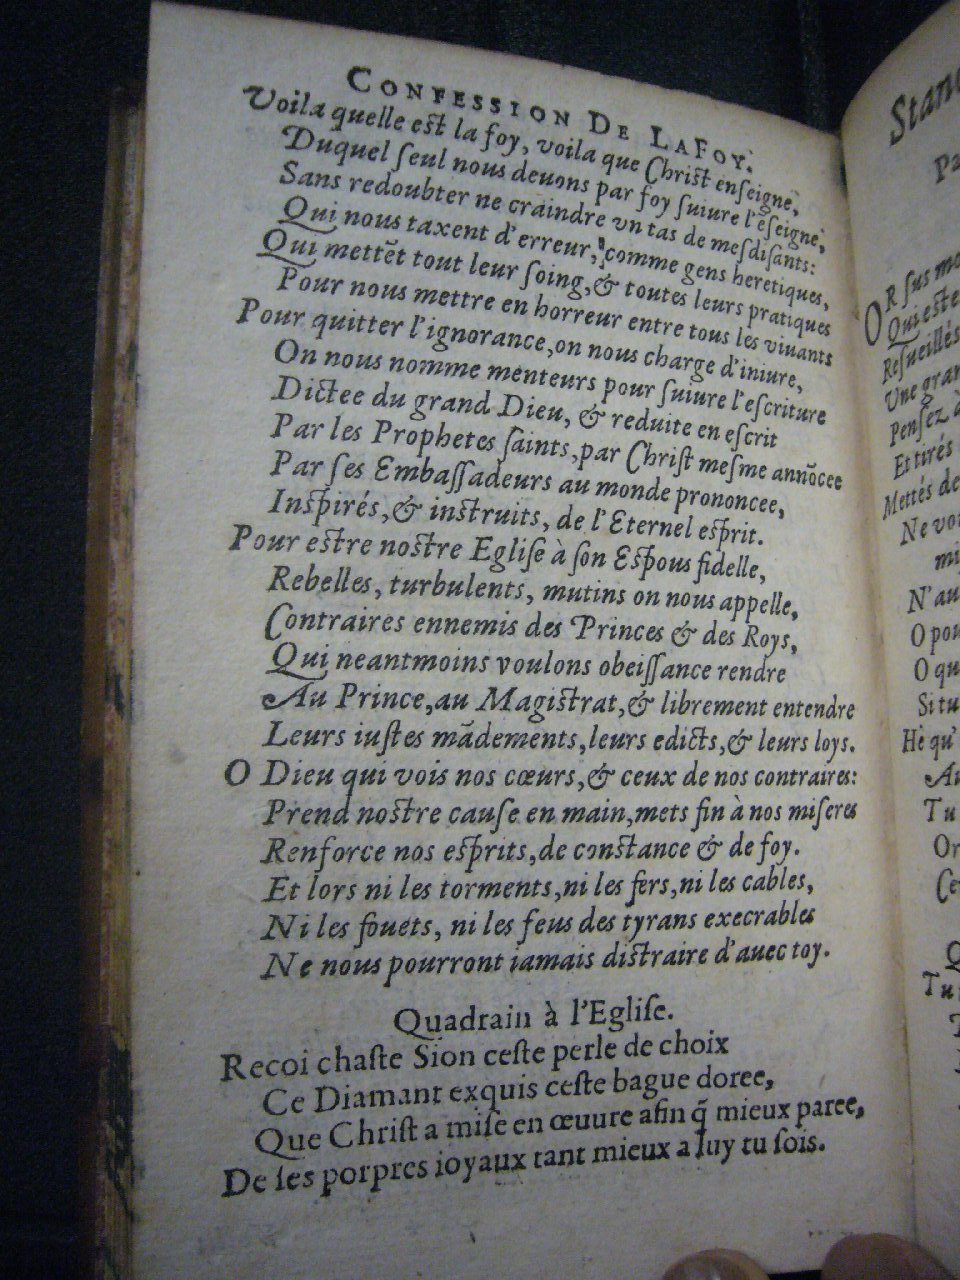 CONFESSION DE LA FOY.
Voila quelle est la foy, voila que Christ enseigne,
Duquel ſeul nous deuons par foy ſuiure l'eſeigne,
Sans redoubter ne craindre vn tas de meſdiſants:
Qui nous taxent d'erreur, comme gens heretiques,
Qui mettẽt tout leur ſoing, & toutes leurs pratiques
Pour nous mettre en horreur entre tous les viuants
Pour quitter l'ignorance, on nous charge d'iniure,
On nous nomme menteurs pour ſuiure l'eſcriture
Dictee du grand Dieu, & reduite en eſcrit
Par les Prophetes ſaints, par Chriſt meſme annõcee
Par ſes Embaſſadeurs au monde prononcee,
Inſpirés, & inſtruits, de l'Eternel eſprit.
Pour eſtre noſtre Egliſe à ſon Eſpous fidelle,
Rebelles, turbulents, mutins on nous appelle,
Contraires ennemis des Princes & des Roys,
Qui neantmoins voulons obeiſſance rendre
Au Prince, au Magiſtrat, & librement entendre
Leurs iuſtes mãdements, leurs edicts, & leurs loys.
O Dieu qui vois nos cœurs, & ceux de nos contraires:
Prend noſtre cauſe en main, mets fin à nos miſeres
Renforce nos eſprits, de conſtance & de foy.
Et lors ni les torments, ni les fers, ni les cables,
Ni les fouets, ni les feus des tyrans execrables
Ne nous pourront iamais diſtraire d'auec toy.
Quadrain à l'Egliſe.
Recoi chaſte Sion ceſte perle de choix
Ce Diamant exquis ceſte bague doree,
Que Chriſt a miſe en œuure afin q̃ mieux paree,
De ſes porpres ioyaux tant mieux a luy tu ſois.
OR ſus
Qui
Reſueillés
Vne
Penſez à
Et tirés
Mettés
Ne
N'au
O
O
Si tu
Hè qu'
Tu
Or